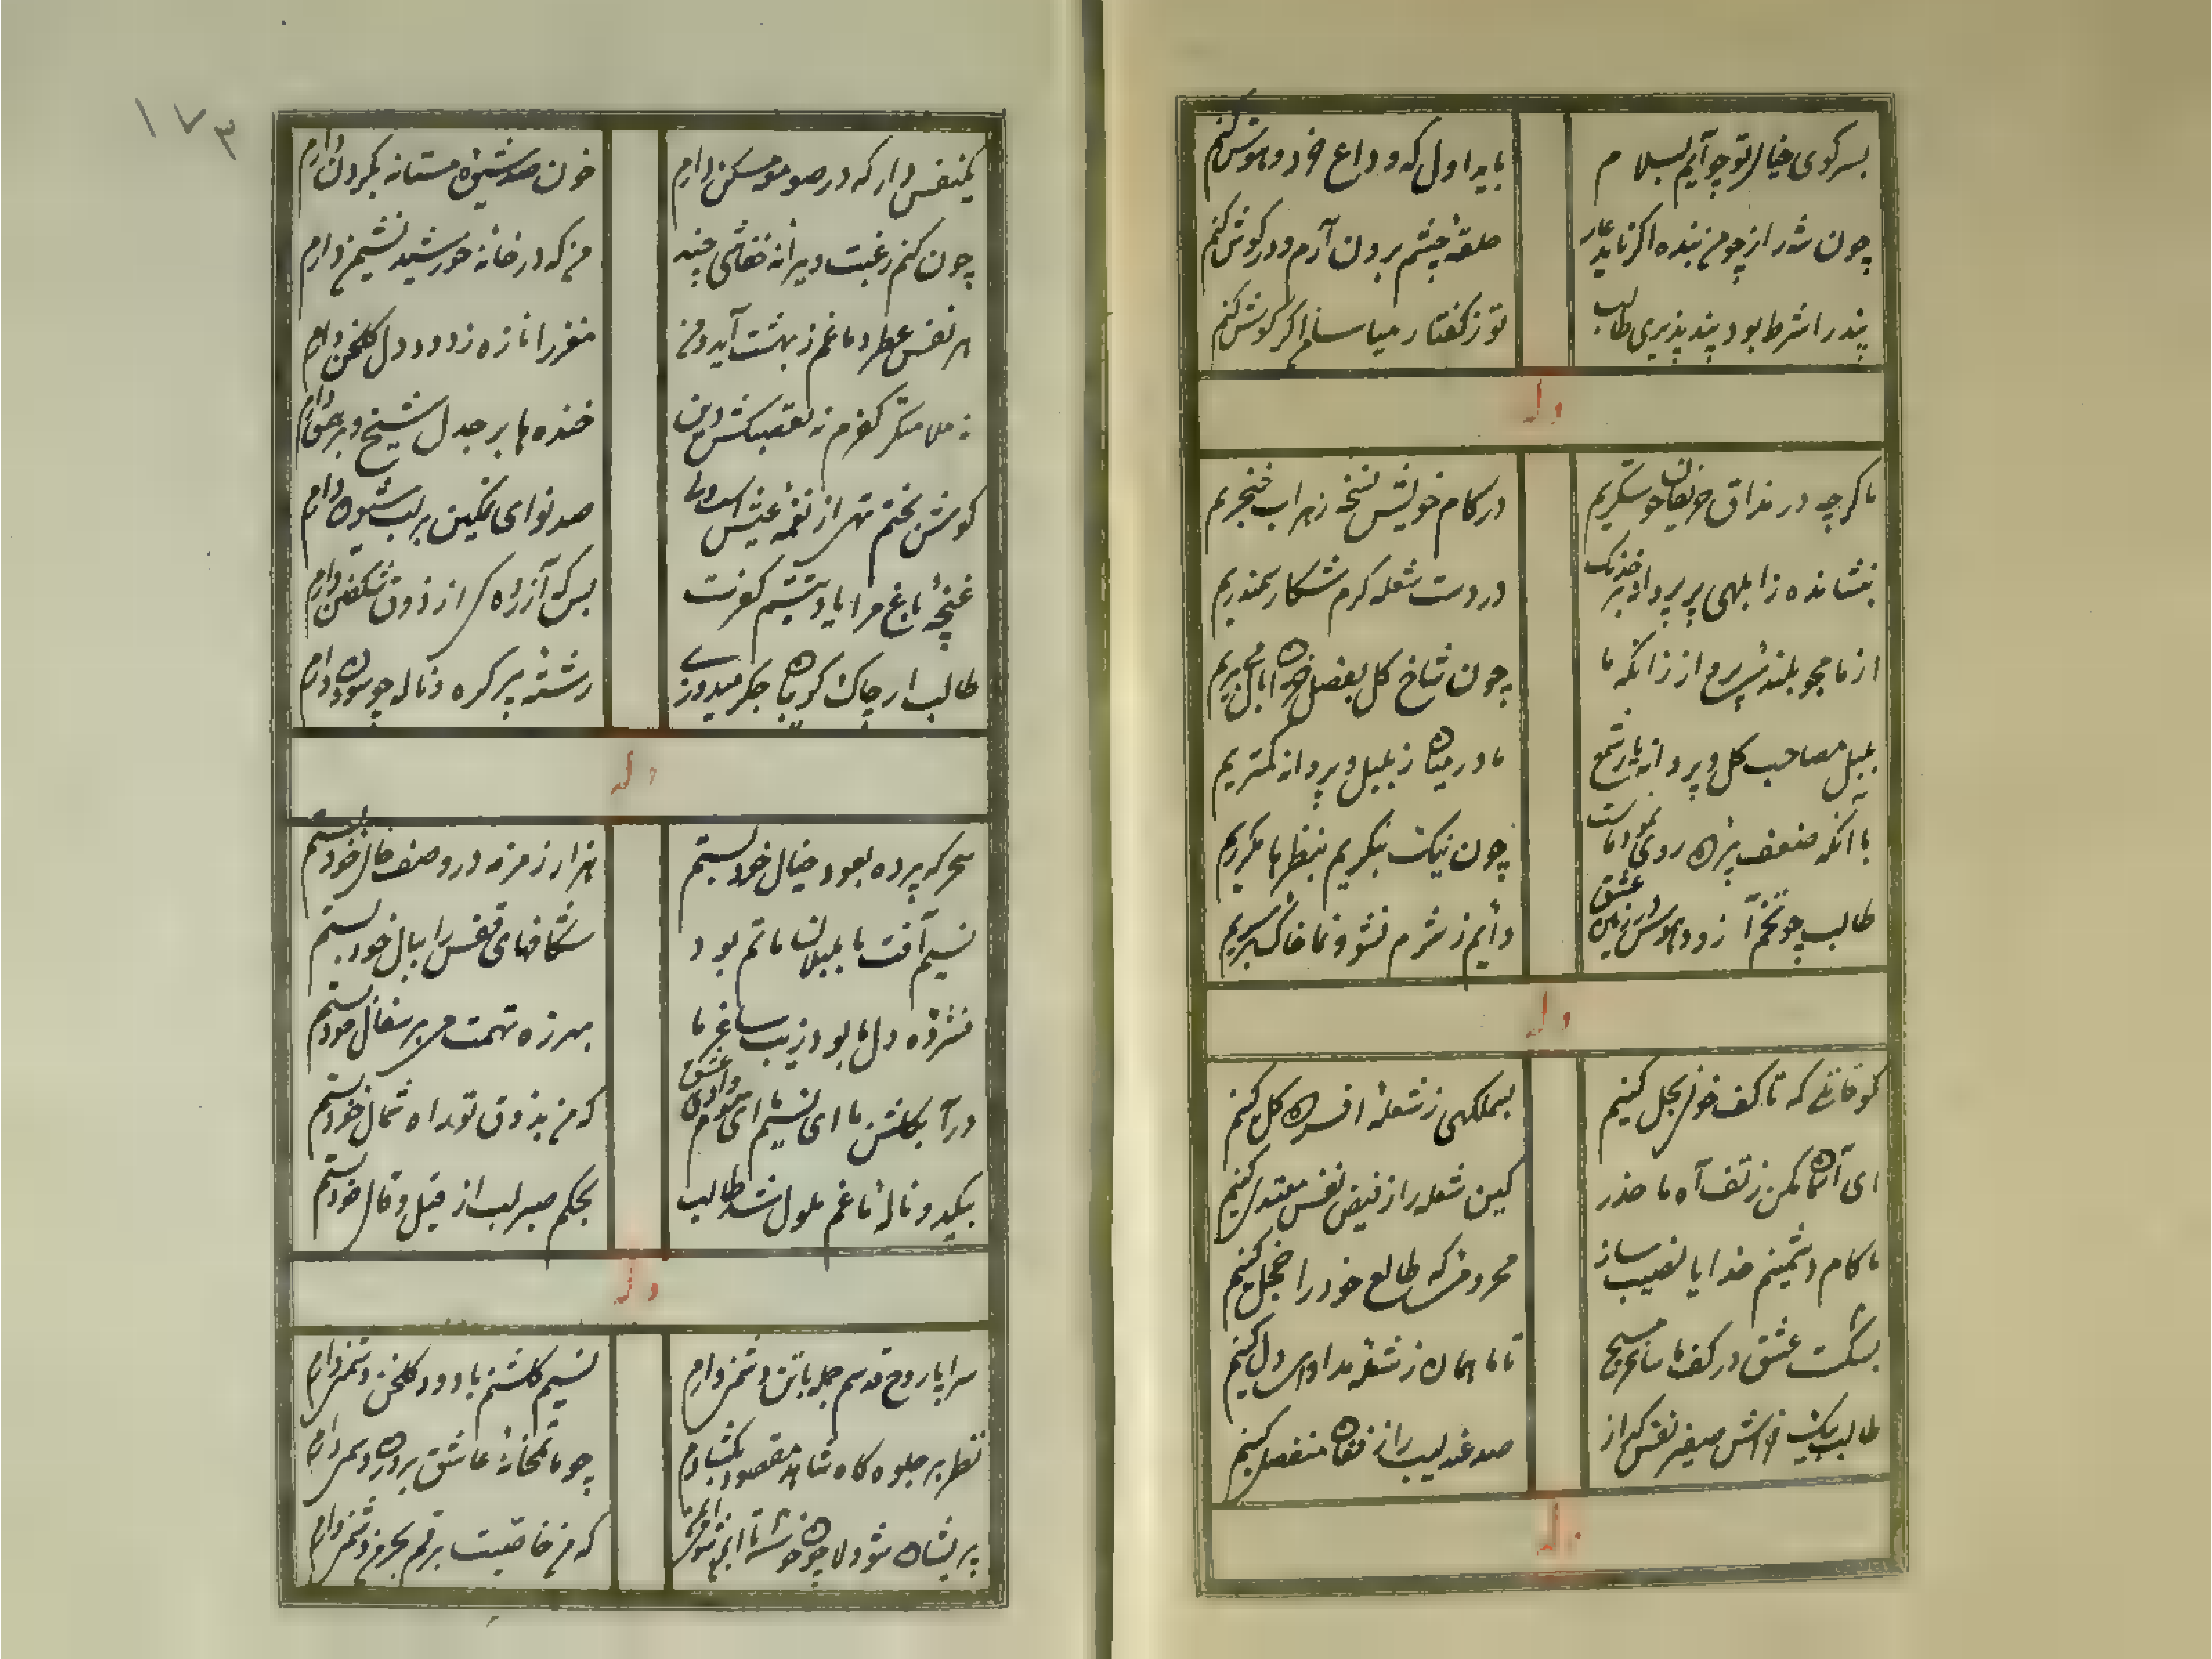 بسر کوی خیال تو چو آیم بسلام
باید اول که وداع خرد و هوش کنم
چون شرر از چو من بنده اکر ناید عار
حلقهٔ چشم برون آرم و در کوش کنم
پند را شرط بود پند پذیری طالب
تو ز کفتار میاسا اکر کوش کنم
وله
ما کرچه در مذاق حریفان چو شکریم
در کام خویش نسخهٔ زهراب خنجریم
بنشانده ز ابلهی پر پروانه بر خدنک
در دست شعله کرم شکار سمندریم
از ما مجو بلندی پرواز زانکه ما
چون شاخ کل بفصل خزان بی بریم
بلبل مصاحب کل و پروانه یار شمع
ما در میان ز بلبل و پروانه کمتریم
با آنکه ضعف پرده روی نمود ماست
چون نیک بنکریم بنظرها مکرریم
طالب چو تخم آرزو در زمین عشق
دایم ز شرم نشو و نما خاک بر سریم
وله
کو قاتلی که تا کف خونی بحل کنیم
ای آسمان مکن ز تف آه ما حذر
کین شعله را ز فیض نفس معتدل کنیم
ما کام دشمنیم خدایا نصیب ساز
محرومیی که طالع خود را خجل کنیم
بشکست عشق در کف ما ساغر مسیح
تا ما همان ز شعله مداوای دل کنیم
طالب بیک نوازش صفیر نفس کداز
صد عندلیب را ز فغان منفعل کنیم
وله
۱۷۳
یکنفس دار که در صومعه مسکن دارم
خون صد شیشهٔ مستانه بکردن دارم
چون کنم رغبت ویرانه خفاشی چند
من که در خانهٔ خورشید نشیمن دارم
هر نفس عطر دماغم ز بهشت آید و من
مغز را تازه ز دود دل کلخن دارم
نه ملامتکر کفرم نه تعصبکش دین
خنده ها بر جدل شیخ و برهمن دارم
کوش بختم تهی از نغمهٔ عیش است ولی
صد نوای نمکین بر لب شیون دارم
غنچهٔ باغ مرا یاد تبسم کفرست
بس که آزرده کی از ذوق شکفتن دارم
رشتهٔ پر کره و ناله چو سوزن دارم
وله
سحر که پرده بعود خیال خود بستم
هزار زمزمه در وصف خال خود بستم
نسیم آفت ما بلبلان ماتم بود
شکافهای قفس را ببال خود بستم
فشرده دل ما بود زیب ساغر ما
بهرزه تهمت می بر سفال خود بستم
درآ بکلشن ما ای نسیم وادی عشق
که من بذوق تو راه شمال خود بستم
بحکم صبر لب از قیل و قال خود بستم
وله
سراپا روح قدسم جلد با تن دشمنی دارم
نسیم کلشنم با دود کلخن دشمنی دارم
نظر بر جلوه کاه شاهد مقصود نکشادم
چو ماتمخانهٔ عاشق بروزن دشمنی دارم
که من خاصیت برقم بخرمن دشمنی دارم